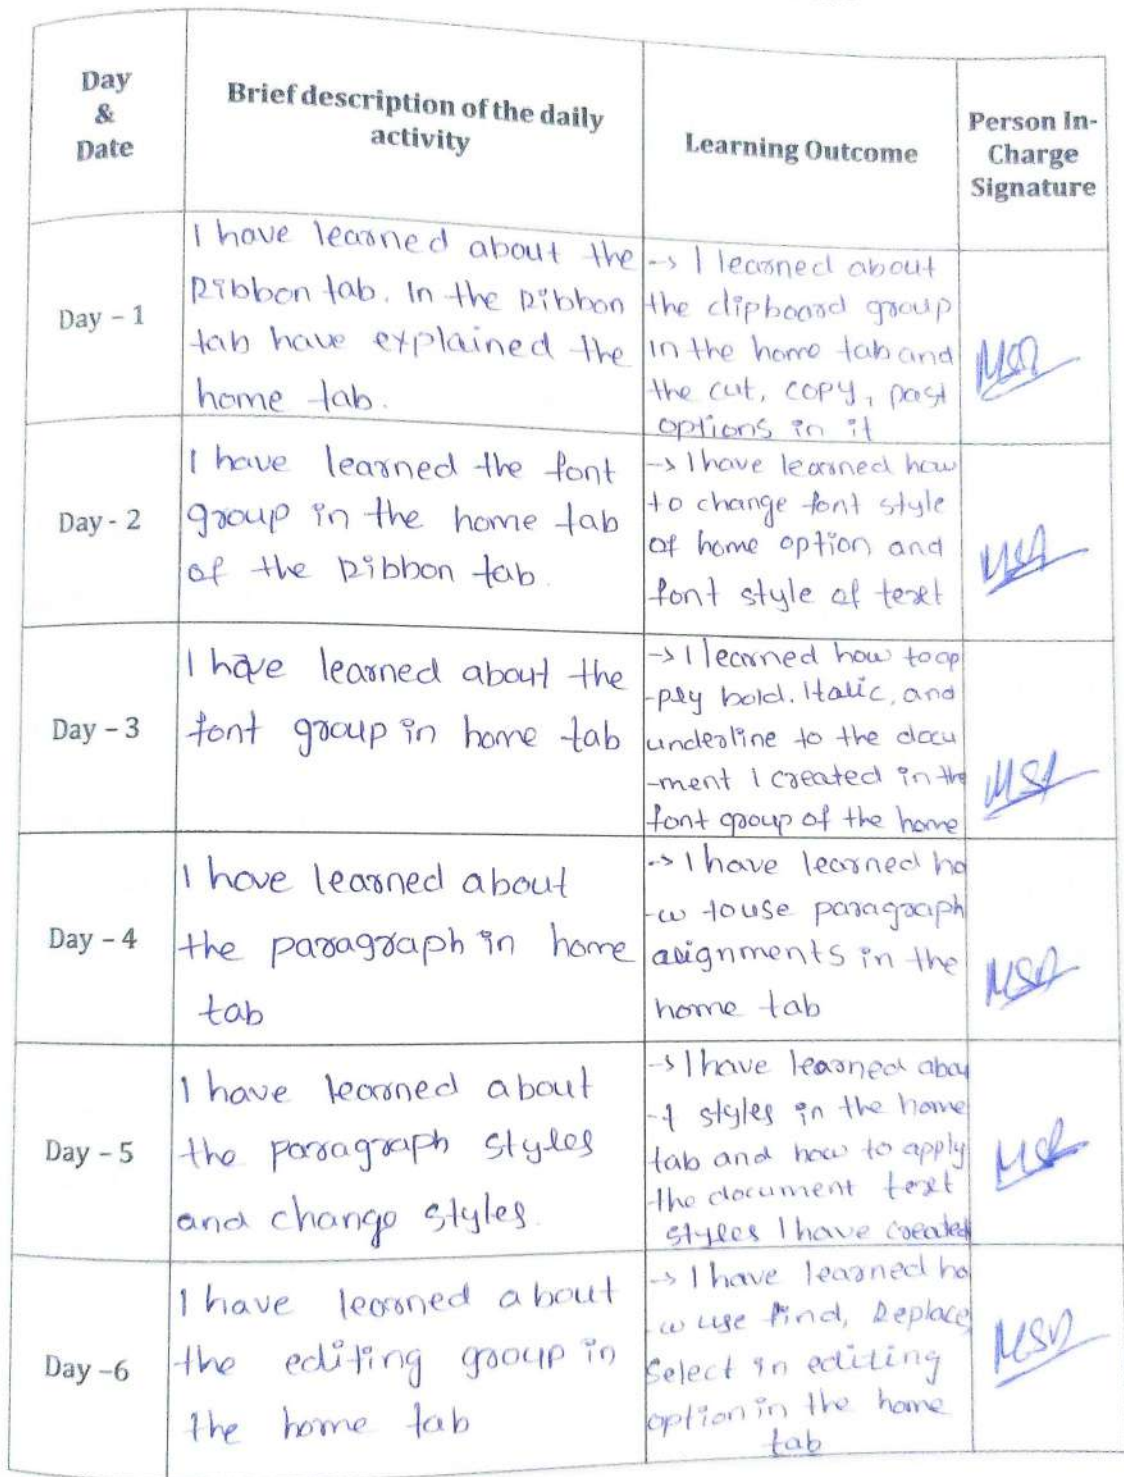 Day
&
Date
Brief description of the daily
activity
Learning Outcome
Person In-
Charge
Signature
Day - 1
I have learned about the
Ribbon tab. In the Ribbon
tab have explained the
home tab.
→ I learned about
the clipboard group
in the home tab and
the cut, copy, past
options in it
Day - 2
I have learned the font
group in the home tab
of the Ribbon tab.
→ I have learned how
to change font style
of home option and
font style of text
Day - 3
I have learned about the
font group in home tab
→ I learned how to ap
-ply bold. Italic, and
underline to the docu
-ment I created in the
font group of the home
Day - 4
I have learned about
the paragraph in home
tab
→ I have learned ho
-w to use paragraph
alignments in the
home tab
Day - 5
I have learned about
the paragraph styles
and change styles.
→ I have learned abou
-t styles in the home
tab and how to apply
the document text
styles I have created
Day -6
I have learned about
the editing group in
the home tab
→ I have learned ho
-w use find, Replace,
Select in editing
option in the home
tab